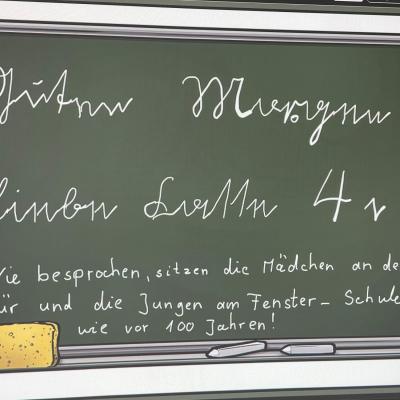 Guten Morgen
liebe 4
Wie besprochen, sitzen die Mädchen an de
ür und die Jungen am Fenster - Schule
wie vor 100 Jahren!